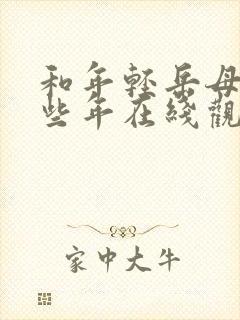 和年轻岳母
些年在线觀
家中大牛